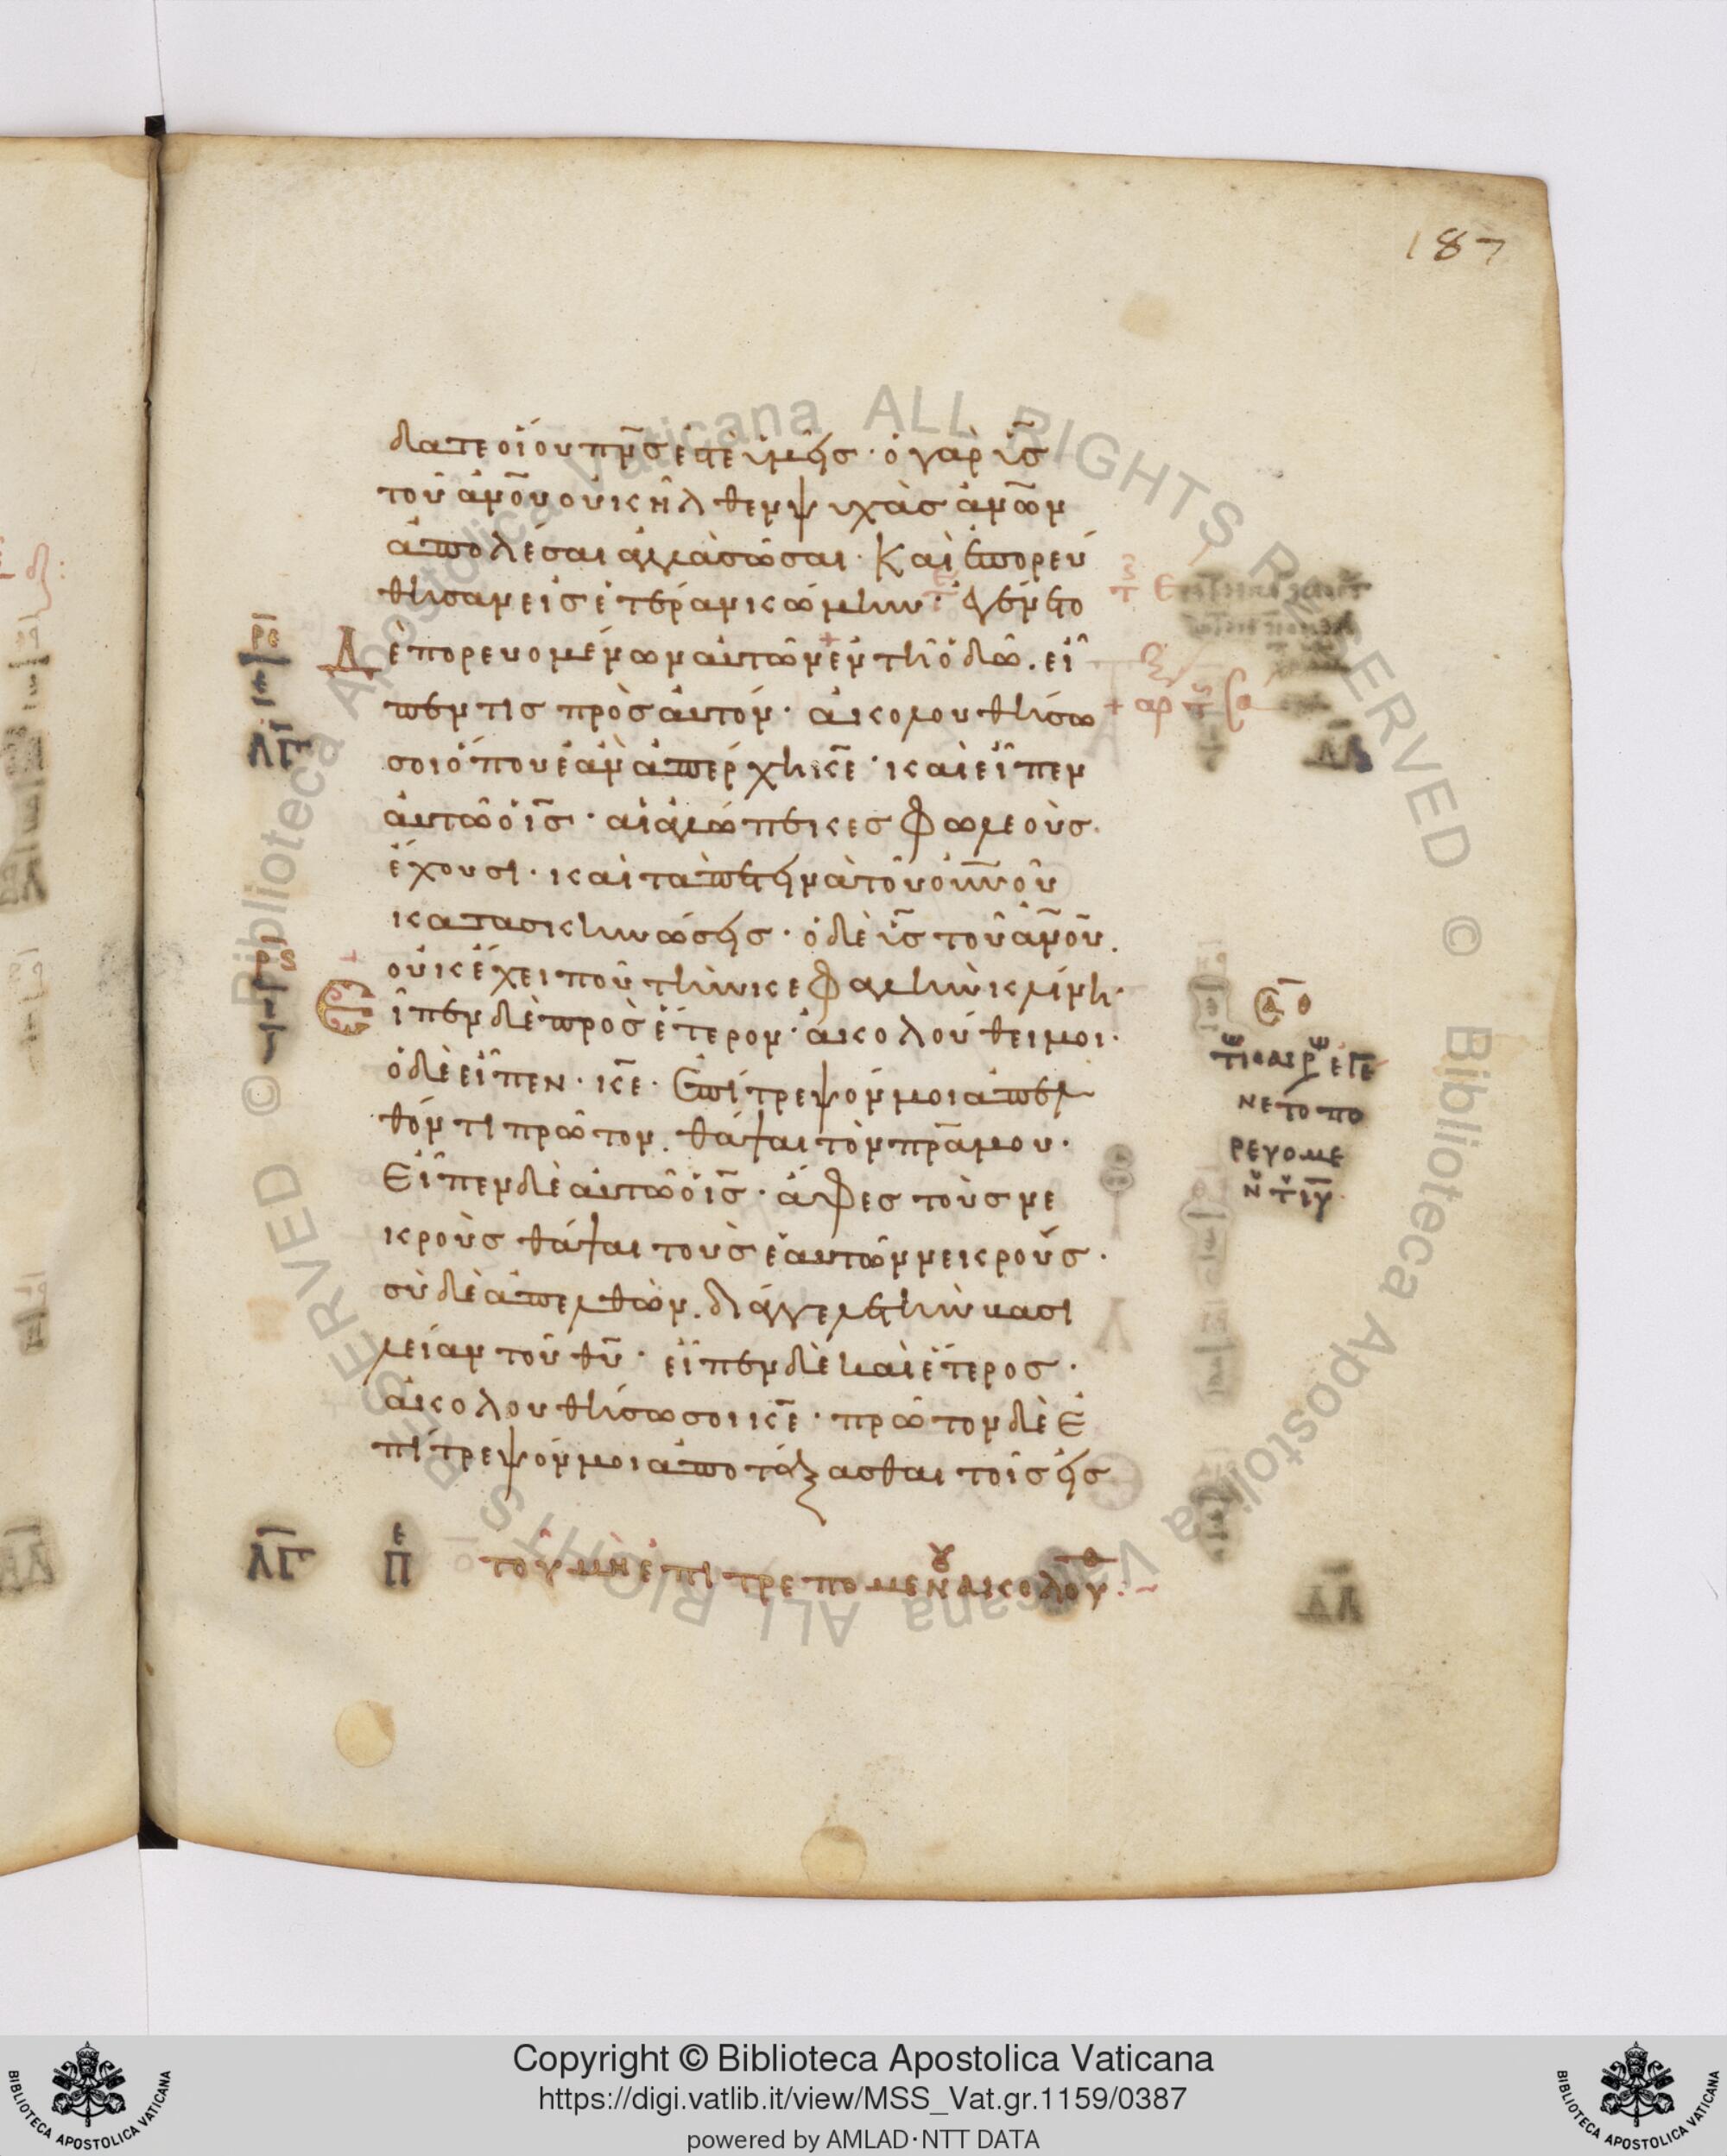 187
δατε οἵου πν̅σ ἐστὲ ὑμεῖσ · ὁ γὰρ ὑ̅σ
τοῦ ἀν̅ου οὐκ ἦλθεν ψυχὰσ ἀν̅ων
ἀπολέσαι ἀλλὰ σῶσαι · Καὶ ἐπορεύ
θησαν εἰσ ἑτέραν κώμην · Ἐγένετο
Δὲ πορευομένων αὐτῶν ἐν τῆ ὁδῶ . εἶ
πέν τισ πρὸσ αὐτόν · ἀκολουθήσω
σοι ὅπου ἐὰν ἀπέρχη κ̅ε · καὶ εἶπεν
αὐτῶ ὁ ι̅σ · αἱ ἀλώπεκεσ φωλεοὺσ
ἔχουσι · καὶ τὰ πετεινὰ τοῦ οὐν̅οῦ
κατασκηνώσεισ · ὁ δὲ ὑ̅σ τοῦ ἀν̅ου .
οὐκ ἔχει ποῦ τὴν κεφαλὴν κλίνη ·
Εἶπεν δὲ πρὸσ ἕτερον · ἀκολούθει μοι ·
ὁ δὲ εἶπεν · κ̅ε · ἐπίτρεψόν μοι ἀπελ
θόντι πρῶτον . θάψαι τὸν πρ̅α μου ·
Εἶπεν δὲ αὐτῶ ὁ ι̅σ · ἄφεσ τοὺσ νε
κροὺσ θάψαι τοὺσ ἑαυτῶν νεκρούσ ·
σὺ δὲ ἀπελθὼν . διάγγελλε τὴν βασι
λείαν τοῦ θ̅υ · εἶπεν δὲ καὶ ἕτεροσ ·
ἀκολουθήσω σοι κ̅ε · πρῶτον δὲ ἐ
πίτρεψόν μοι ἀποτάξασθαι τοῖσ εἰσ
Λ̅Γ̅ Π̅ε τοῦ μὴ ἐπιτρεπομένου ἀκολουθ
ρ̅ε
Λ̅Γ̅
ρ̅ς
+ αρ
νετο πο
ρευομε
Copyright © Biblioteca Apostolica Vaticana
https://digi.vatlib.it/view/MSS_Vat.gr.1159/0387
powered by AMLAD·NTT DATA
BIBLIOTECA APOSTOLICA VATICANA
BIBLIOTECA APOSTOLICA VATICANA
© Biblioteca Apostolica Vaticana ALL RIGHTS RESERVED
© Biblioteca Apostolica Vaticana ALL RIGHTS RESERVED